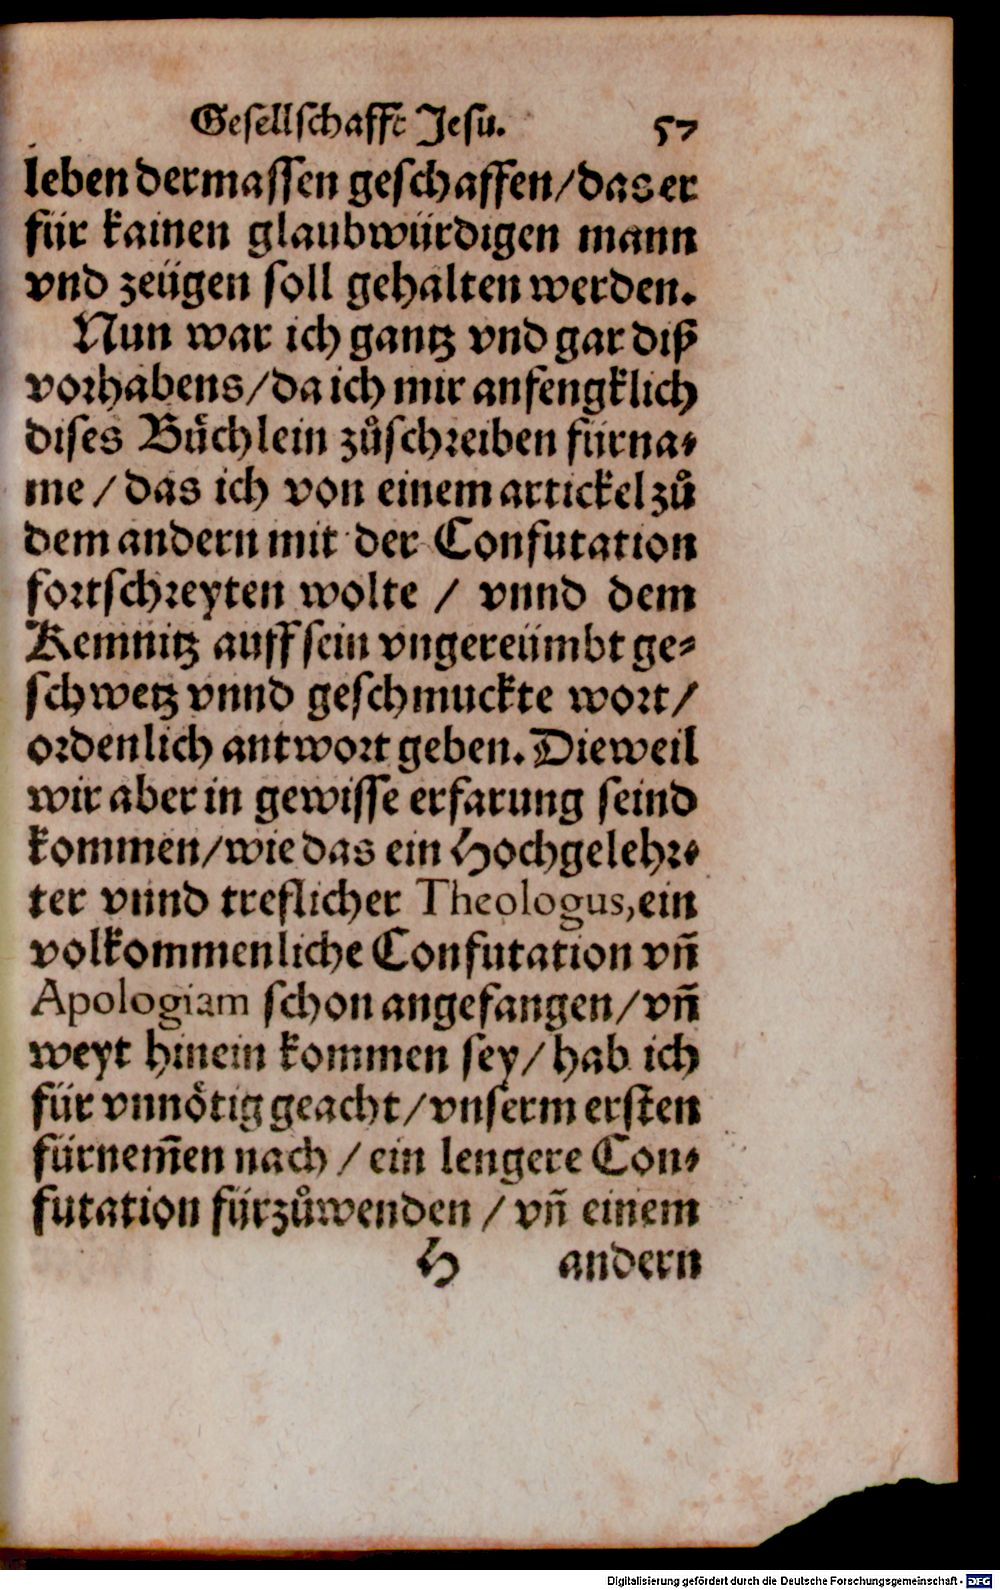 Gesellschafft Jesu. 57
leben dermassen geschaffen/das er
für kainen glaubwürdigen mann
vnd zeügen soll gehalten werden.
Nun war ich gantz vnd gar diß
vorhabens/da ich mir anfengklich
dises Bůchlein zůschreiben fürna⸗
me / das ich von einem artickel zů
dem andern mit der Confutation
fortschreyten wolte / vnnd dem
Kemnitz auff sein vngereümbt ge⸗
schwetz vnnd geschmuckte wort/
ordenlich antwort geben. Dieweil
wir aber in gewisse erfarung seind
kommen/wie das ein Hochgelehr⸗
ter vnnd treflicher Theologus, ein
volkommenliche Confutation vñ
Apologiam schon angefangen/vñ
weyt hinein kommen sey/hab ich
für vnnötig geacht/vnserm ersten
fürnem̃en nach / ein lengere Con⸗
futation fürzůwenden / vñ einem
H andern
Digitalisierung gefördert durch die Deutsche Forschungsgemeinschaft - DFG